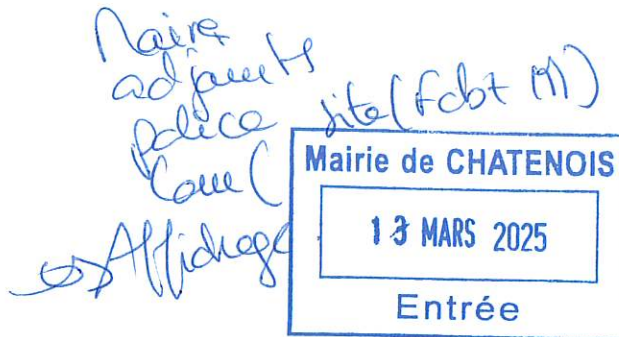 Maire
adjoints
police
Com ( site (Fcbt M)
→ Affichage
Mairie de CHATENOIS
13 MARS 2025
Entrée